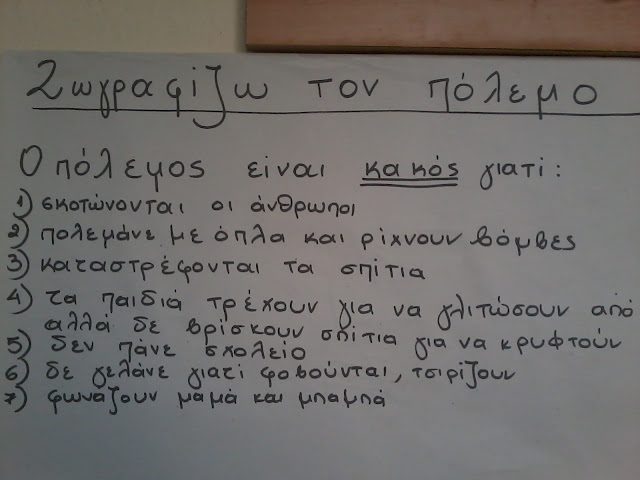 Ζωγραφίζω τον πόλεμο
Ο πόλεμος είναι κακός γιατί:
1) σκοτώνονται οι άνθρωποι
2) πολεμάνε με όπλα και ρίχνουν βόμβες
3) καταστρέφονται τα σπίτια
4) τα παιδιά τρέχουν για να γλιτώσουν από
αλλά δε βρίσκουν σπίτια για να κρυφτούν
5) δεν πάνε σχολείο
6) δε γελάνε γιατί φοβούνται, τσιρίζουν
7) φωνάζουν μαμά και μπαμπά